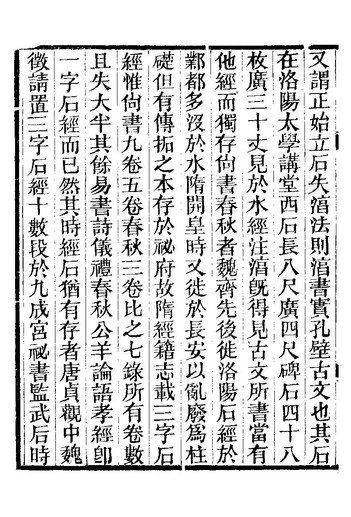 又謂正始立石失淳法則淳書實孔壁古文也其石
在洛陽太學講堂西石長八尺廣四尺碑石四十八
枚廣三十丈見於水經注淳既得見古文所書當有
他經而獨存尙書春秋者魏齊先後徙洛陽石經於
鄴都多沒於水隋開皇時又徙於長安以亂廢爲柱
礎但有傳拓之本存於祕府故隋經籍志載三字石
經惟尙書九卷五卷春秋三卷比之七錄所有卷數
且失大半其餘易書詩儀禮春秋公羊論語孝經卽
一字石經而已然其時經石猶有存者唐貞觀中魏
徵請置三字石經十數段於九成宮祕書監武后時